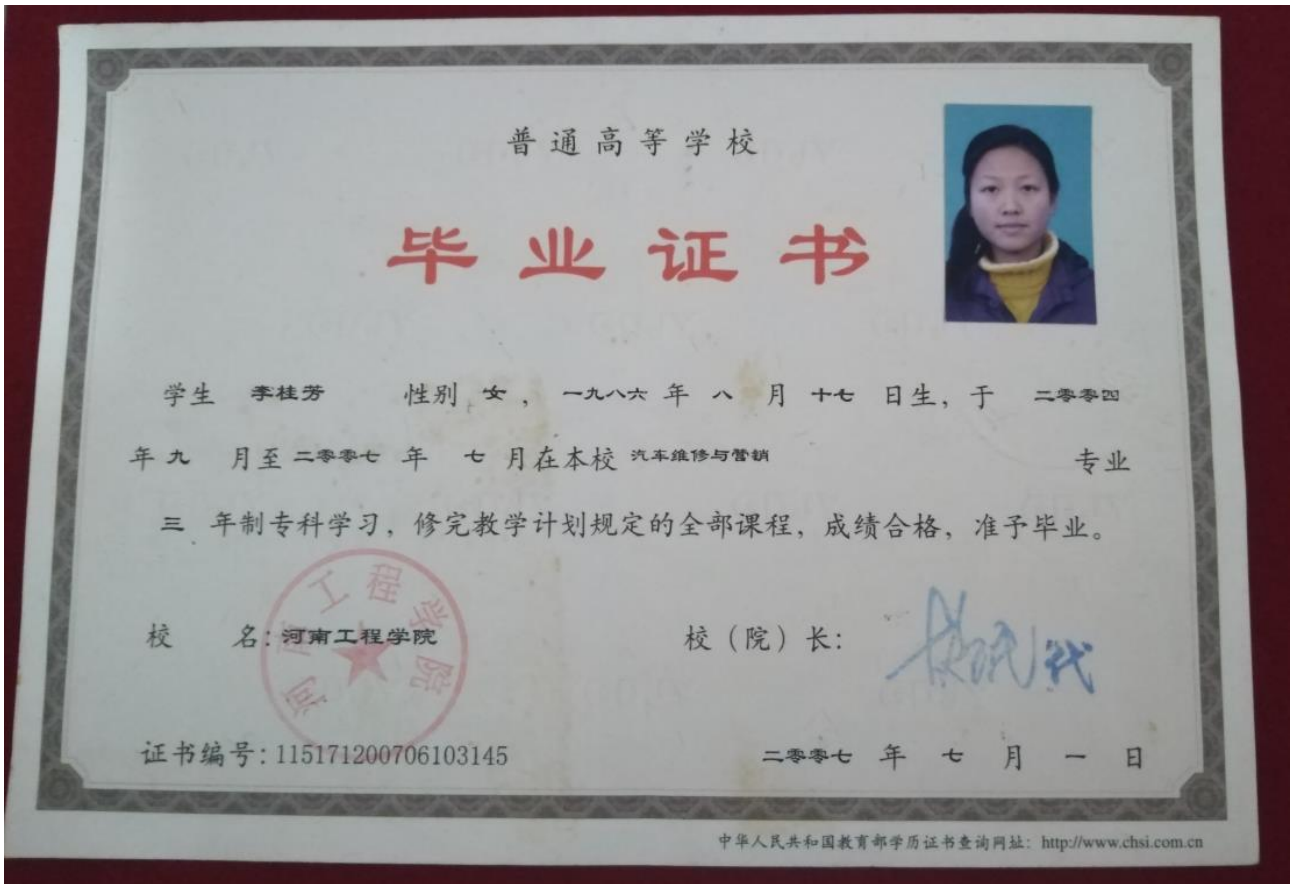 普通高等学校
毕业证书
学生 李桂芳 性别 女 ，一九八六 年 八 月 十七 日生，于 二零零四
年 九 月至 二零零七 年 七 月在本校 汽车维修与营销 专业
三 年制专科学习，修完教学计划规定的全部课程，成绩合格，准予毕业。
校 名：河南工程学院 校（院）长：
河南工程学院
证书编号：115171200706103145 二零零七 年 七 月 一 日
中华人民共和国教育部学历证书查询网址：http://www.chsi.com.cn